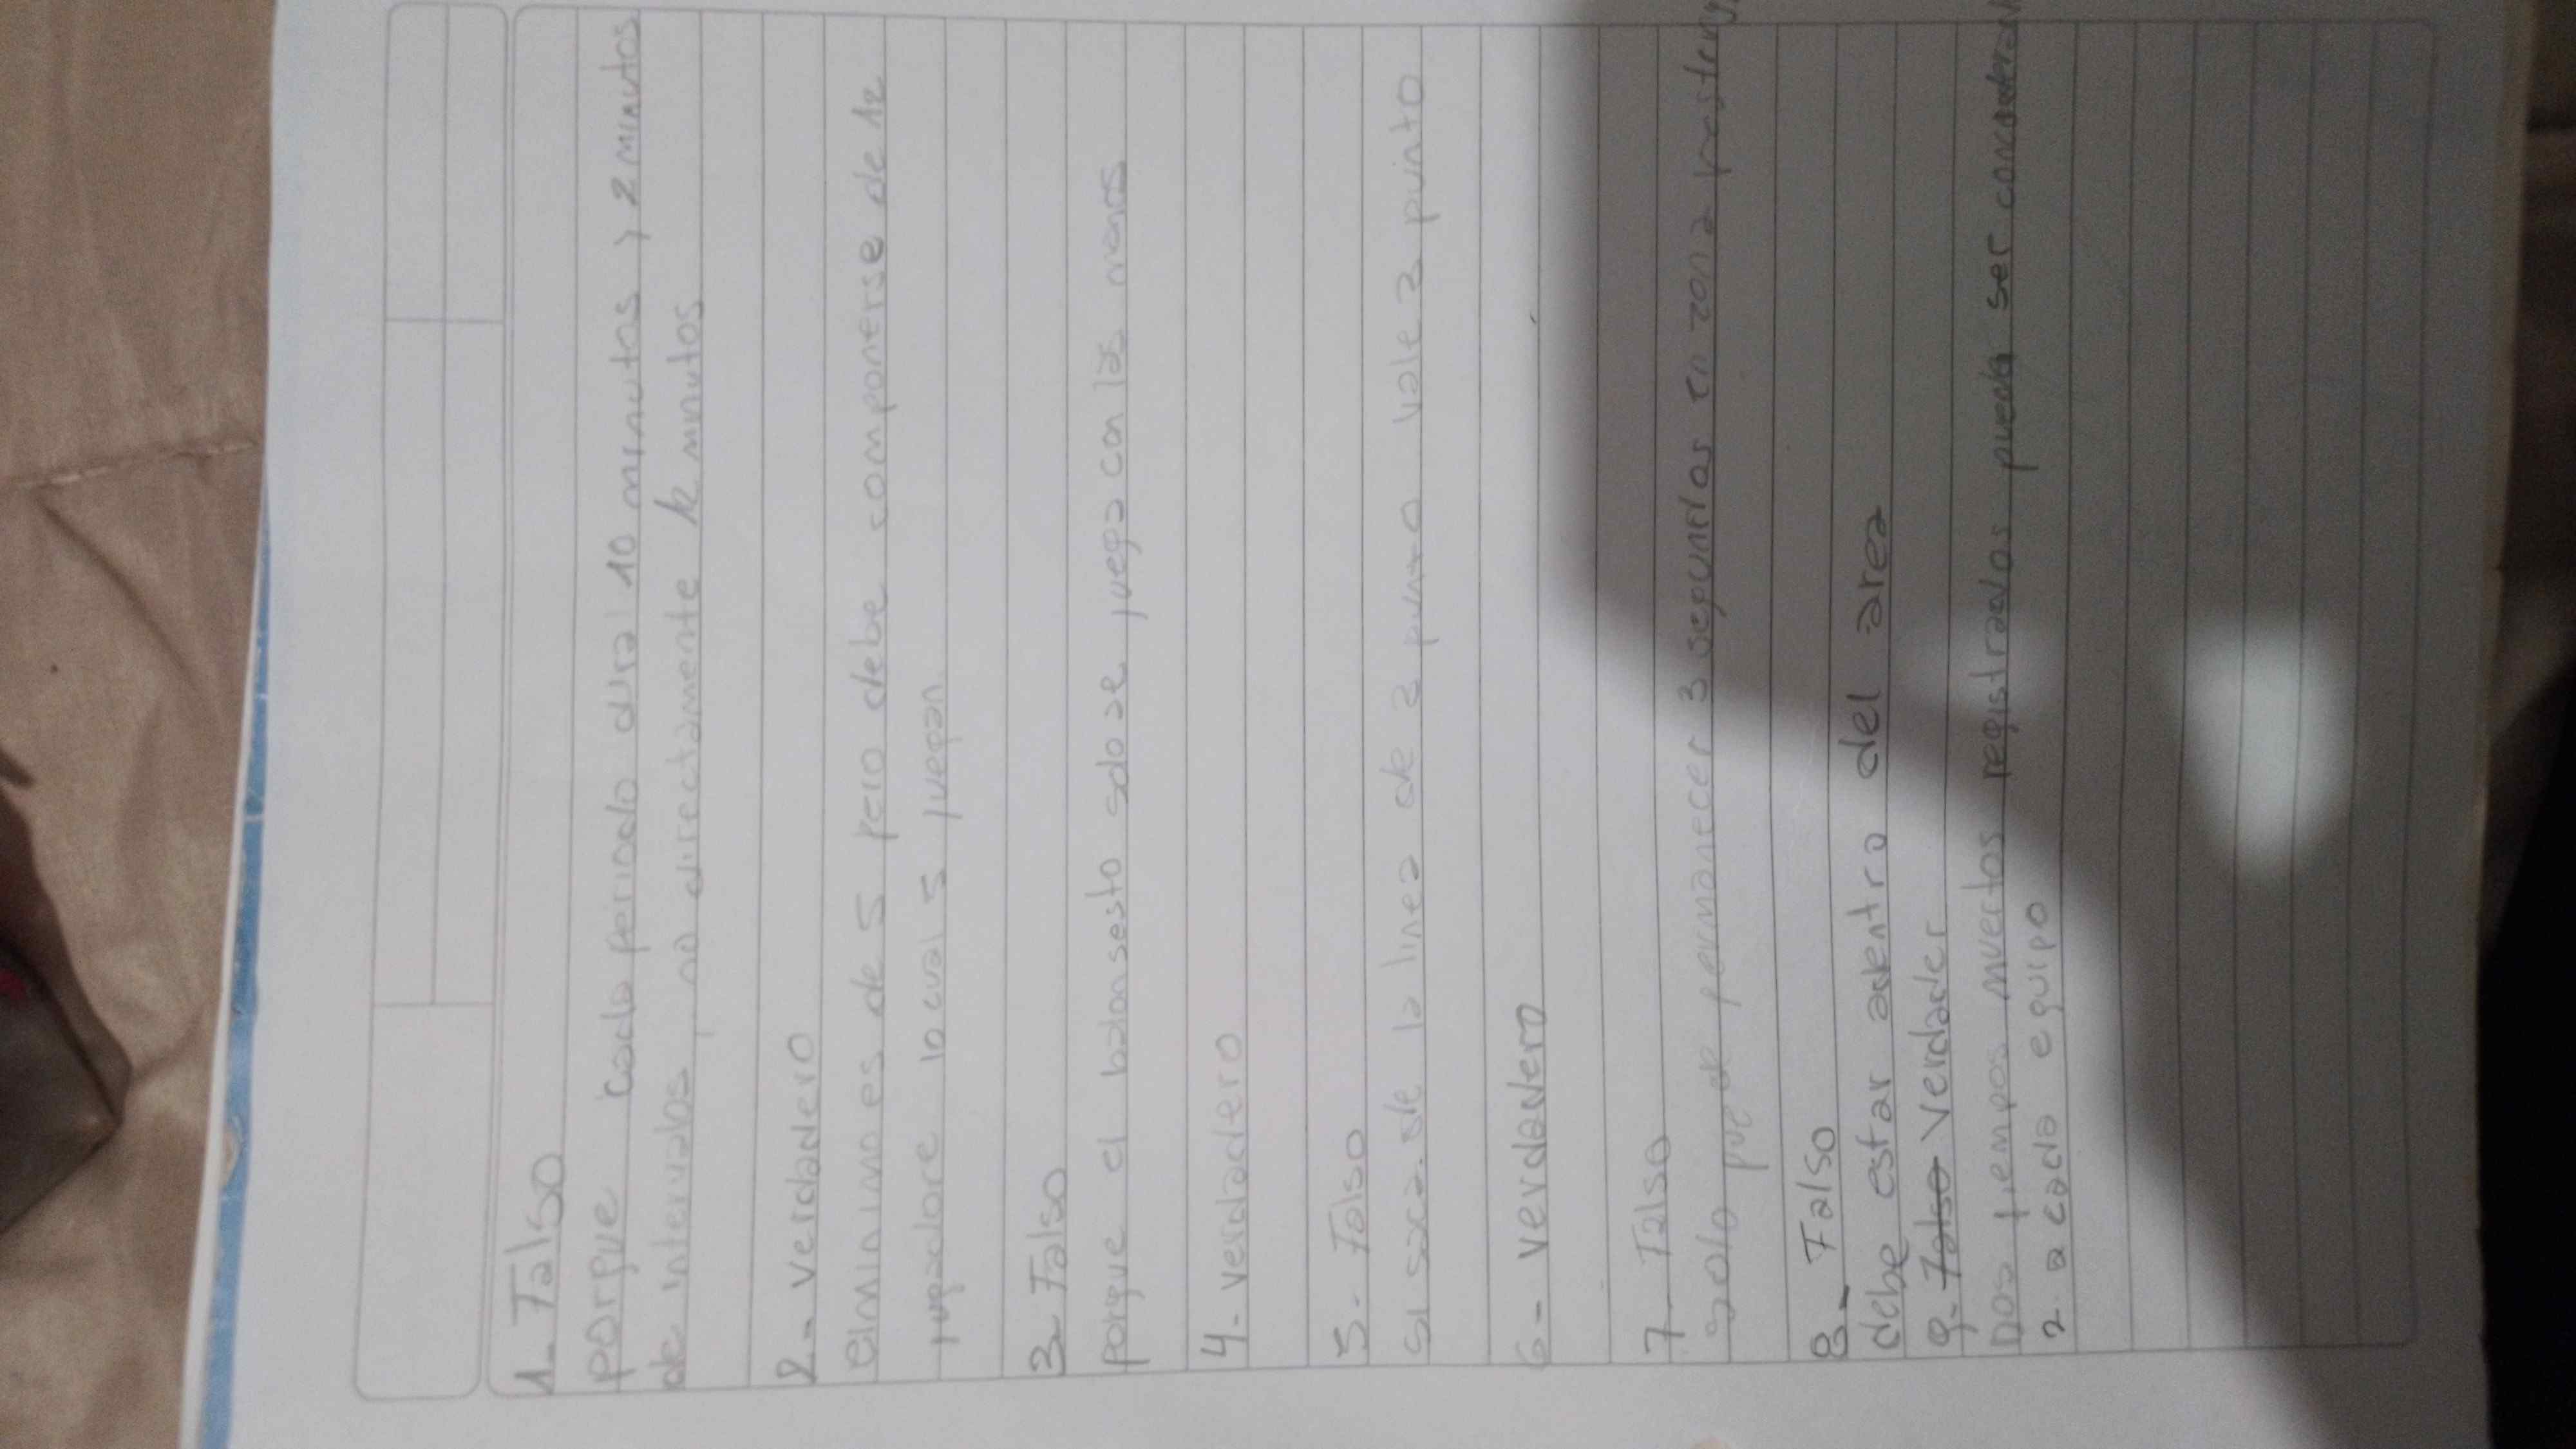 1- Falso
porque cada periodo dura 10 minutos y 2 minutos
de intervalos, no directamente 12 minutos
2.- Verdadero
El minimo es de 5 pero debe componerse de 12
jugadore lo cual 5 juegan.
3- Falso
porque el balonsesto solo se juega con las manos
4- Verdadero
5- Falso
si saca de la linea de 3 punto vale 3 punto
6- Verdadero
7- Falso
Solo puede permanecer 3 segundos en zona
8- Falso
debe estar adentro del area
9- Falso Verdader
Dos tiempos muertos registrados puede ser
2 a cada equipo